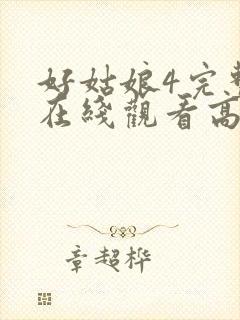 好姑娘4完整
在綫觀看高
章超桦